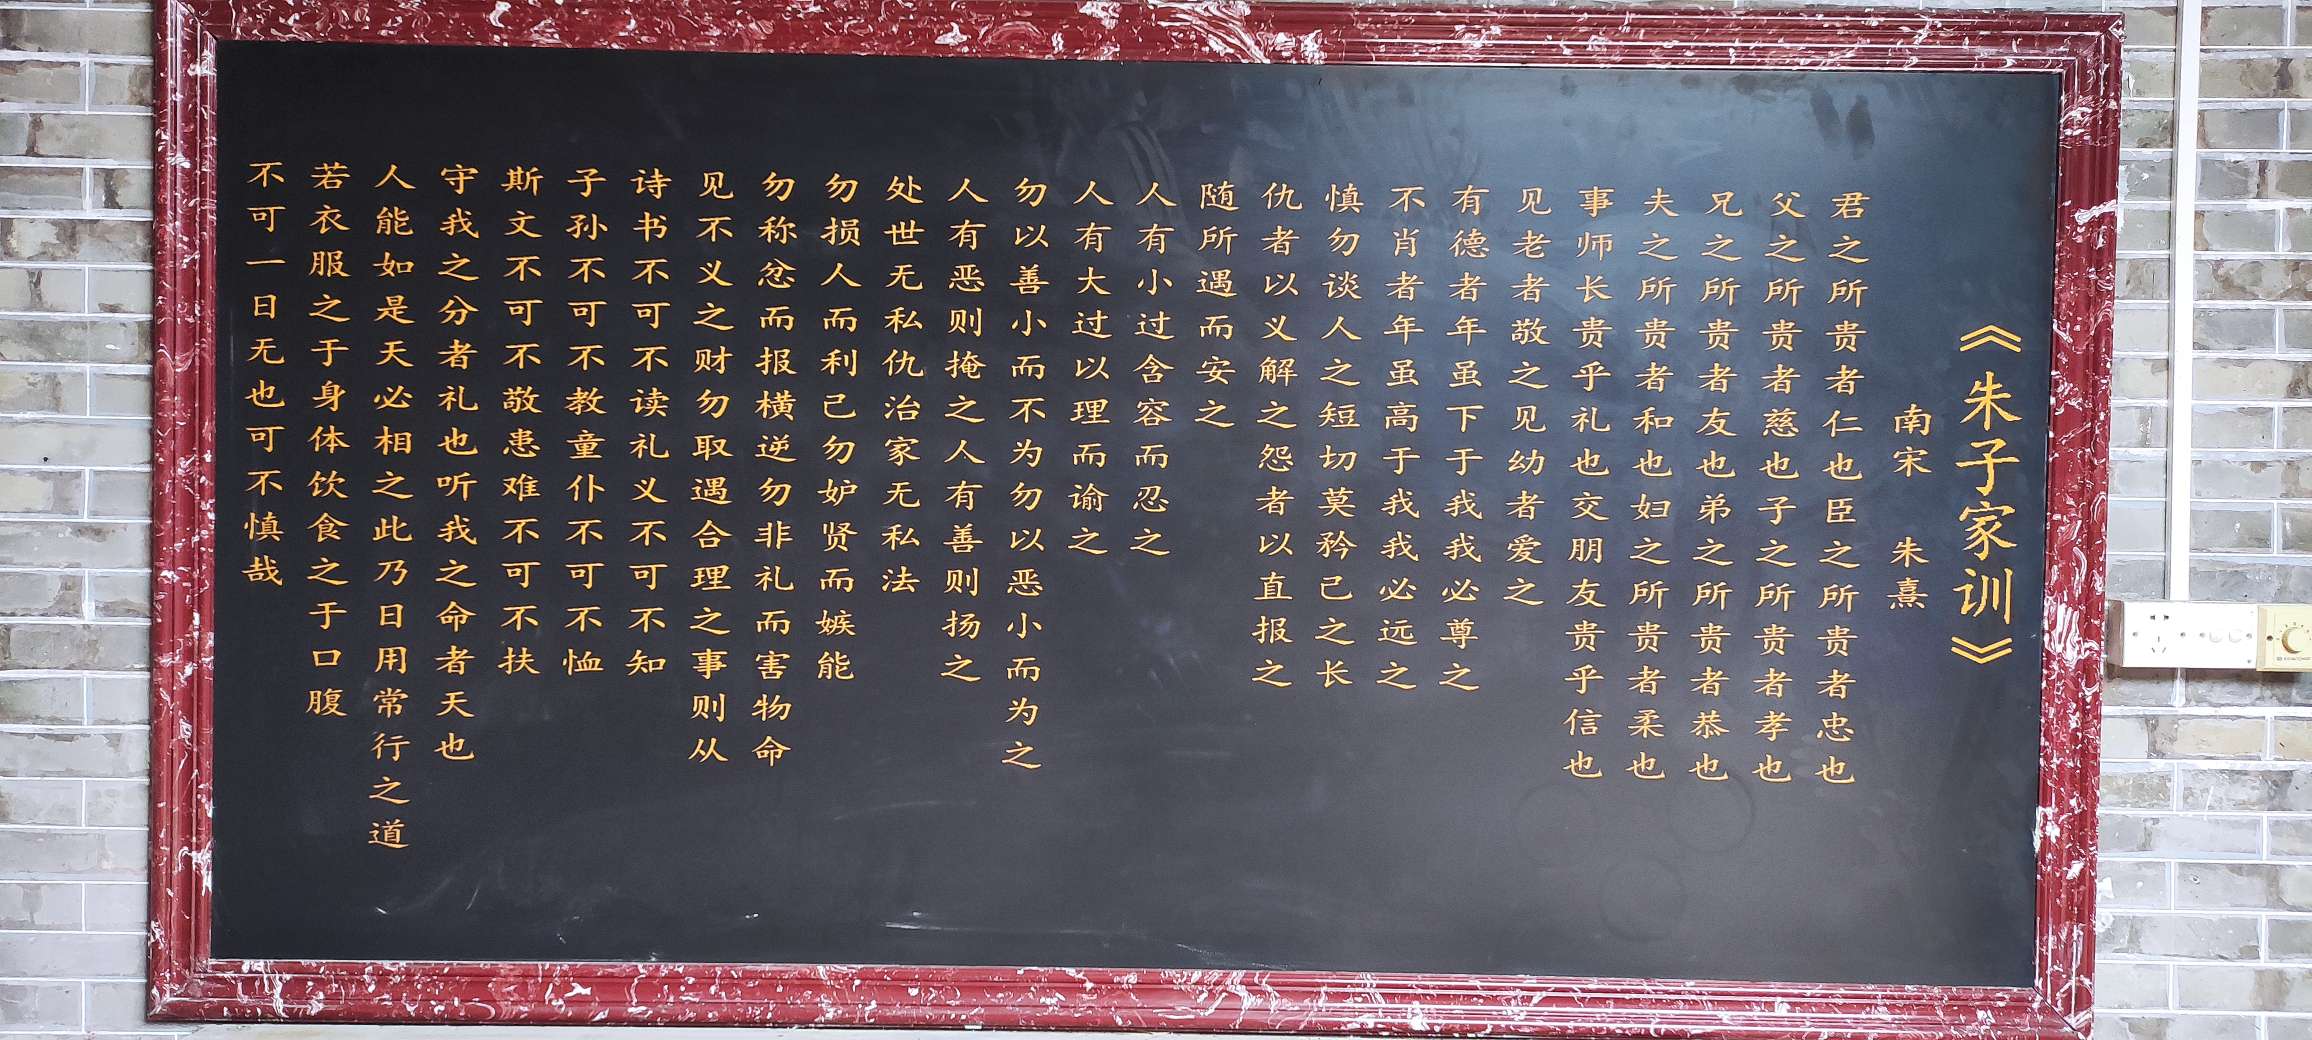 《朱子家训》
南宋 朱熹
君之所贵者仁也臣之所贵者忠也
父之所贵者慈也子之所贵者孝也
兄之所贵者友也弟之所贵者恭也
夫之所贵者和也妇之所贵者柔也
事师长贵乎礼也交朋友贵乎信也
见老者敬之见幼者爱之
有德者年虽下于我我必尊之
不肖者年虽高于我我必远之
慎勿谈人之短切莫矜己之长
仇者以义解之怨者以直报之
随所遇而安之
人有小过含容而忍之
人有大过以理而谕之
勿以善小而不为勿以恶小而为之
人有恶则掩之人有善则扬之
处世无私仇治家无私法
勿损人而利己勿妒贤而嫉能
勿称忿而报横逆勿非礼而害物命
见不义之财勿取遇合理之事则从
诗书不可不读礼义不可不知
子孙不可不教童仆不可不恤
斯文不可不敬患难不可不扶
守我之分者礼也听我之命者天也
人能如是天必相之此乃日用常行之道
若衣服之于身体饮食之于口腹
不可一日无也可不慎哉